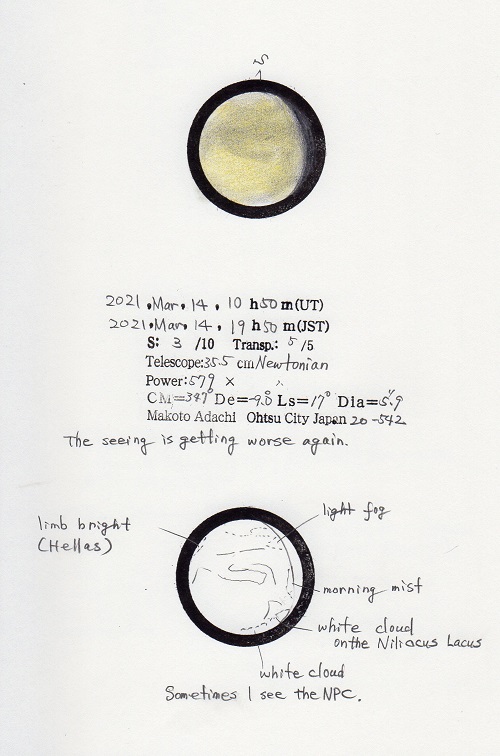 S
2021.Mar.14.10 h 50 m(UT)
2021.Mar.14.19 h 50 m(JST)
S: 3 /10 Transp.: 5 /5
Telescope:35.5 cm Newtonian
Power:579 ×
CM=347° De=-9.0° Ls=17° Dia=5.9"
Makoto Adachi Ohtsu City Japan 20-542
The seeing is getting worse again.
limb bright
(Hellas)
light fog
morning mist
white cloud
on the Niliacus Lacus
white cloud
Sometimes I see the NPC.